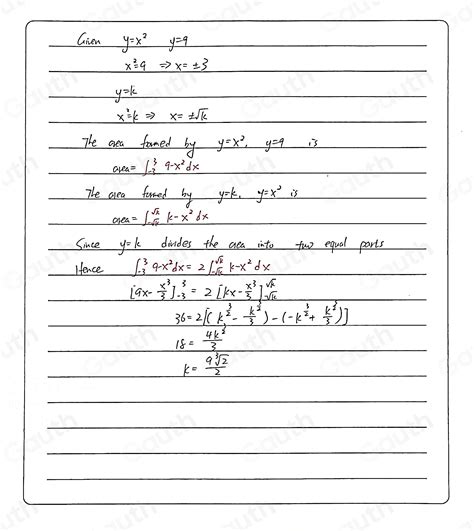 Given y=x² y=9
x²=9 ⇒ x= ±3
y=k
x²=k ⇒ x= ±√k
The area formed by y=x², y=9 is
area= ∫₋₃³ 9-x² dx
The area formed by y=k, y=x² is
area= ∫_{-√k}^{√k} k-x² dx
Since y=k divides the area into two equal parts
Hence ∫₋₃³ 9-x² dx = 2∫_{-√k}^{√k} k-x² dx
[9x- x³/3]₋₃³ = 2[kx- x³/3]_{-√k}^{√k}
36=2[(k^{3/2} - k^{3/2}/3) - (-k^{3/2} + k^{3/2}/3)]
18= 4k^{3/2}/3
k= 9∛2/2
Gauth